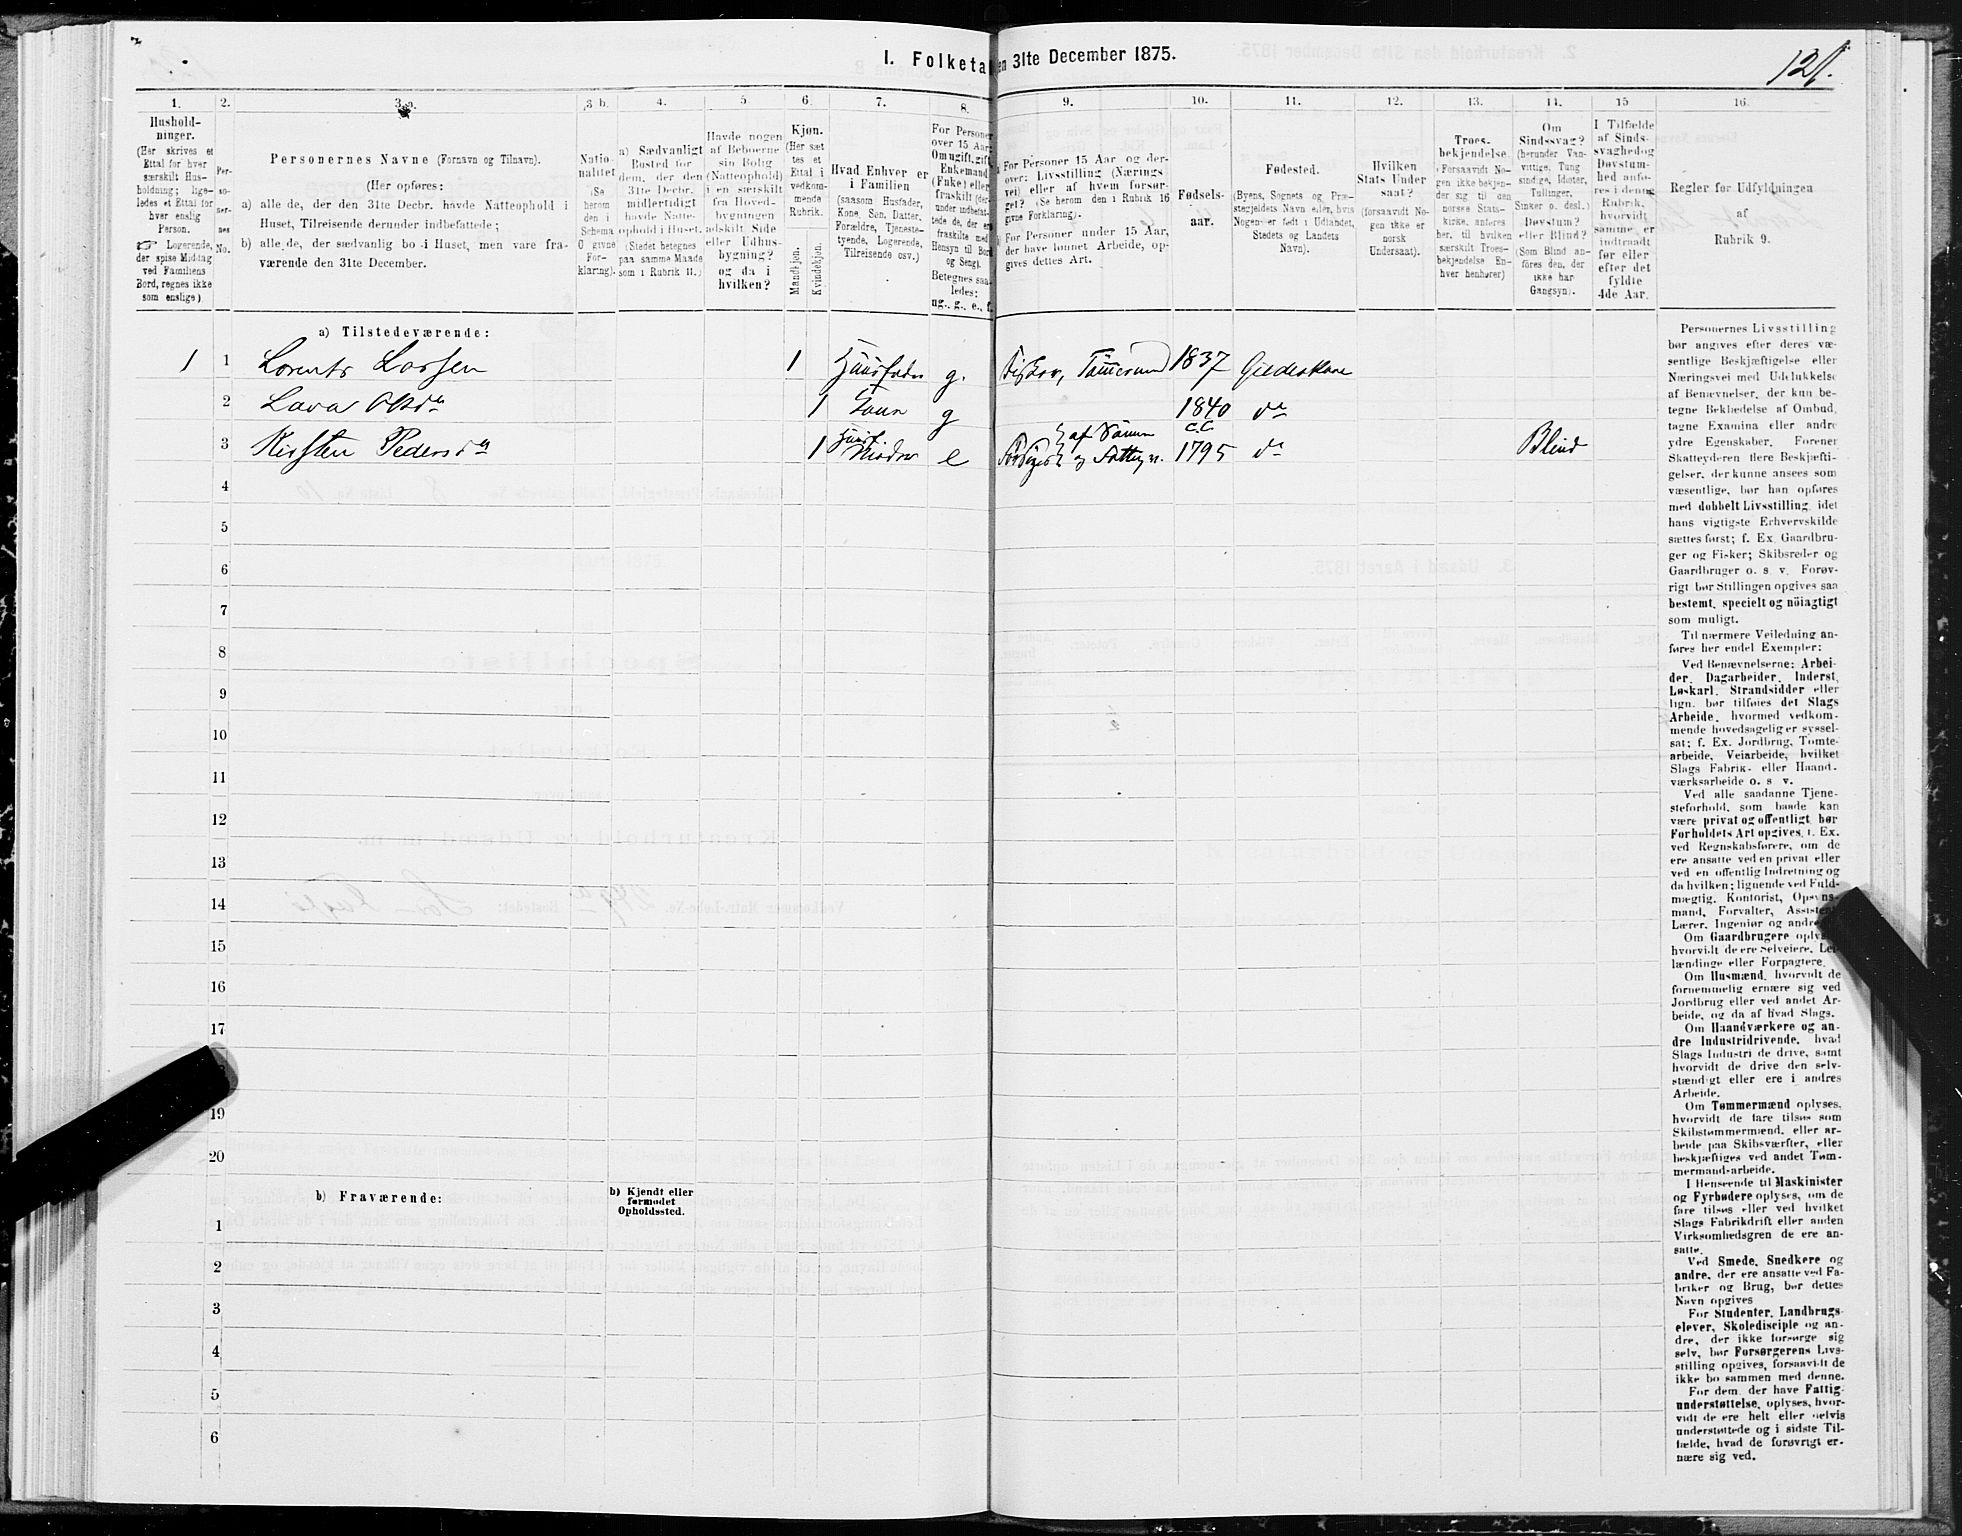 I. Folketa en 31te December 1875.
121.
1.
Hushold-
ninger.
(Her skrives et
Ettal for hver
særskilt Hus-
holdning; lige-
ledes et Ettal for
hver enslig
Person.
Logerende,
der spise Middag
ved Familiens
Bord, regnes ikke
som enslige)
2.
Per-
so-
ner-
nes
No.
3 a.
Personernes Navne (Fornavn og Tilnavn).
(Her opføres:
a) alle de, der den 31te Decbr. havde Natteophold i
Huset, Tilreisende derunder indbefattede;
b) alle de, der sædvanlig bo i Huset, men vare fra-
værende den 31te December.
3 b.
Natio-
nalitet
(Se
herom
den i
Schema
O givne
For-
klaring).
4.
a) Sædvanligt
Bosted for
dem, der den
31te Decbr.
midlertidigt
havde Natte-
ophold i Huset.
(Stedet betegnes
paa samme Maade
som i Rubrik 11.)
5.
Havde nogen
af Beboerne
sin Bolig
(Natteophold)
i en særskilt
fra Hoved-
bygningen
adskilt Side
eller Udhus-
bygning?
og da i
hvilken?
6.
Kjøn.
(Her sæt
tes et
Ettal i
vedkom-
mende
Rubrik.
Mandkjøn.
Kvindekjøn.
7.
Hvad Enhver er
i Familien
(saasom Husfader,
Kone, Søn, Datter,
Forældre, Tjeneste-
tyende, Logerende,
Tilreisende osv.)
8.
For Personer
over 15 Aar:
Om ugift, gift,
Enkemand
(Enke) eller
fraskilt (der-
under indbefat-
tede de, der ere
fraskilte med
Hensyn til Bord
og Seng).
Betegnes saa-
ledes:
ug., g., e., f.
9.
For Personer 15 Aar og der-
over: Livsstilling (Nærings
vei) eller af hvem forsør-
get? (Se herom den i Rubrik 16
givne Forklaring).
For Personer under 15 Aar,
der have lønnet Arbeide, op-
gives dettes Art.
10.
Fødsels-
aar.
11.
Fødested.
(Byens, Sognets og Præ-
stegjeldets Navn eller, hvis
Nogen er født i Udlandet,
Stedets og Landets
Navn).
12.
Hvilken
Stats Under
saat?
(forsaavidt No-
gen ikke er
norsk
Undersaat).
13.
Troes-
bekjendelse.
(Forsaavidt No-
gen ikke bekjen-
der sig til den
norske Stats-
kirke, anføres
her, til hvilken
særskilt Troes-
bekjendelse En-
hver henhører)
14.
Om
Sindssvag?
(herunder Van-
vittige, Tung
sindige, Idioter,
Tullinger,
Sinker o. desl.)
Døvstum?
eller Blind?
(Som Blind an-
føres den, der
ikke har
Gangsyn).
15
I Tilfælde
af Sinds-
svaghed og
Døvstum-
hed anfø-
res i denne
Rubrik,
hvorvidt
samme er
indtraadt
før eller
efter det
fyldte
4de Aar.
16.
Regler for Udfyldningen
af
Rubrik 9.
a) Tilstedeværende:
1 1 Lorents Larsen 1 Huusfader g. Fisker, Tømmermand 1837 Gildeskaal
2 Lava Olsdr 1 Kone g 1840 do
3 Kirsten Pedersdr 1 Huusf. Moder e Forsørges af Sønnen og Fattigv. c.c. 1795 do Blind
4
5
6
7
8
9
10
11
12
13
14
15
16
17
19
20
b) Fraværende:
b) Kjendt eller
formodet
Opholdssted.
1
2
3
4
5
6
Personernes Livsstilling
bør angives efter deres væ-
sentlige Beskjæftigelse eller
Næringsvei med Udelukkelse
af Benævnelser, der kun be-
tegne Beklædelse af Ombud,
tagne Examina eller andre
ydre Egenskaber. Forener
Skatteyderen flere Beskjæfti-
gelser, der kunne ansees som
væsentlige, bør han opføres
med dobbelt Livsstilling, idet
hans vigtigste Erhvervskilde
sættes først; f. Ex. Gaardbru-
ger og Fisker; Skibsreder og
Gaardbruger o. s. v. Forøv-
rigt bør Stillingen opgives saa
bestemt, specielt og nöiagtigt
som muligt.
Til nærmere Veiledning an-
føres her endel Exempler:
Ved Benævnelserne: Arbei-
der, Dagarbeider, Inderst,
Løskarl, Strandsidder eller
lign. bør tilføies det Slags
Arbeide, hvormed vedkom-
mende hovedsagelig er syssel-
sat; f. Ex. Jordbrug, Tomte-
arbeide, Veiarbeide, hvilket
Slags Fabrik- eller Haand-
værksarbeide o. s. v.
Ved alle saadanne Tjene-
steforhold, som baade kan
være privat og offentligt, bør
Forholdets Art opgives, f. Ex.
ved Regnskabsførere, om de
ere ansatte ved en privat eller
ved en offentlig Indretning og
da hvilken; lignende ved Fuld-
mægtig, Kontorist, Opsyns-
mand, Forvalter, Assistent,
Lærer, Ingeniør og andre.
Om Gaardbrugere oplyses,
hvorvidt de ere Selveiere, Lei-
lændinge eller Forpagtere.
Om Husmænd, hvorvidt de
fornemmelig ernære sig ved
Jordbrug eller ved andet Ar-
beide, og da af hvad Slags.
Om Haandværkere og an-
dre Industridrivende, hvad
Slags Industri de drive, samt
hvorvidt de drive den selv-
stændigt eller ere i andres
Arbeide.
Om Tømmermænd oplyses,
hvorvidt de fare tilsøs som
Skibstømmermænd, eller ar-
beide paa Skibsværfter, eller
beskjæftiges ved andet Tøm-
mermandarbeide.
I Henseende til Maskinister
og Fyrbødere oplyses, om de
fare tilsøs eller ved hvilket
Slags Fabrikdrift eller anden
Virksomhedsgren de ere an-
satte.
Ved Smede, Snedkere og
andre, der ere ansatte ved Fa-
briker og Brug, bør dettes
Navn opgives
For Studenter, Landbrugs-
elever, Skoledisciple og an-
dre, der ikke forsørge sig
selv, bør Forsørgerens Livs-
stilling opgives, forsaavidt de
ikke bo sammen med denne.
For dem, der have Fattig-
understøttelse, oplyses, hvor-
vidt de ere helt eller delvis
understøttede og i sidste Til-
fælde, hvad de forøvrigt er-
nære sig ved.